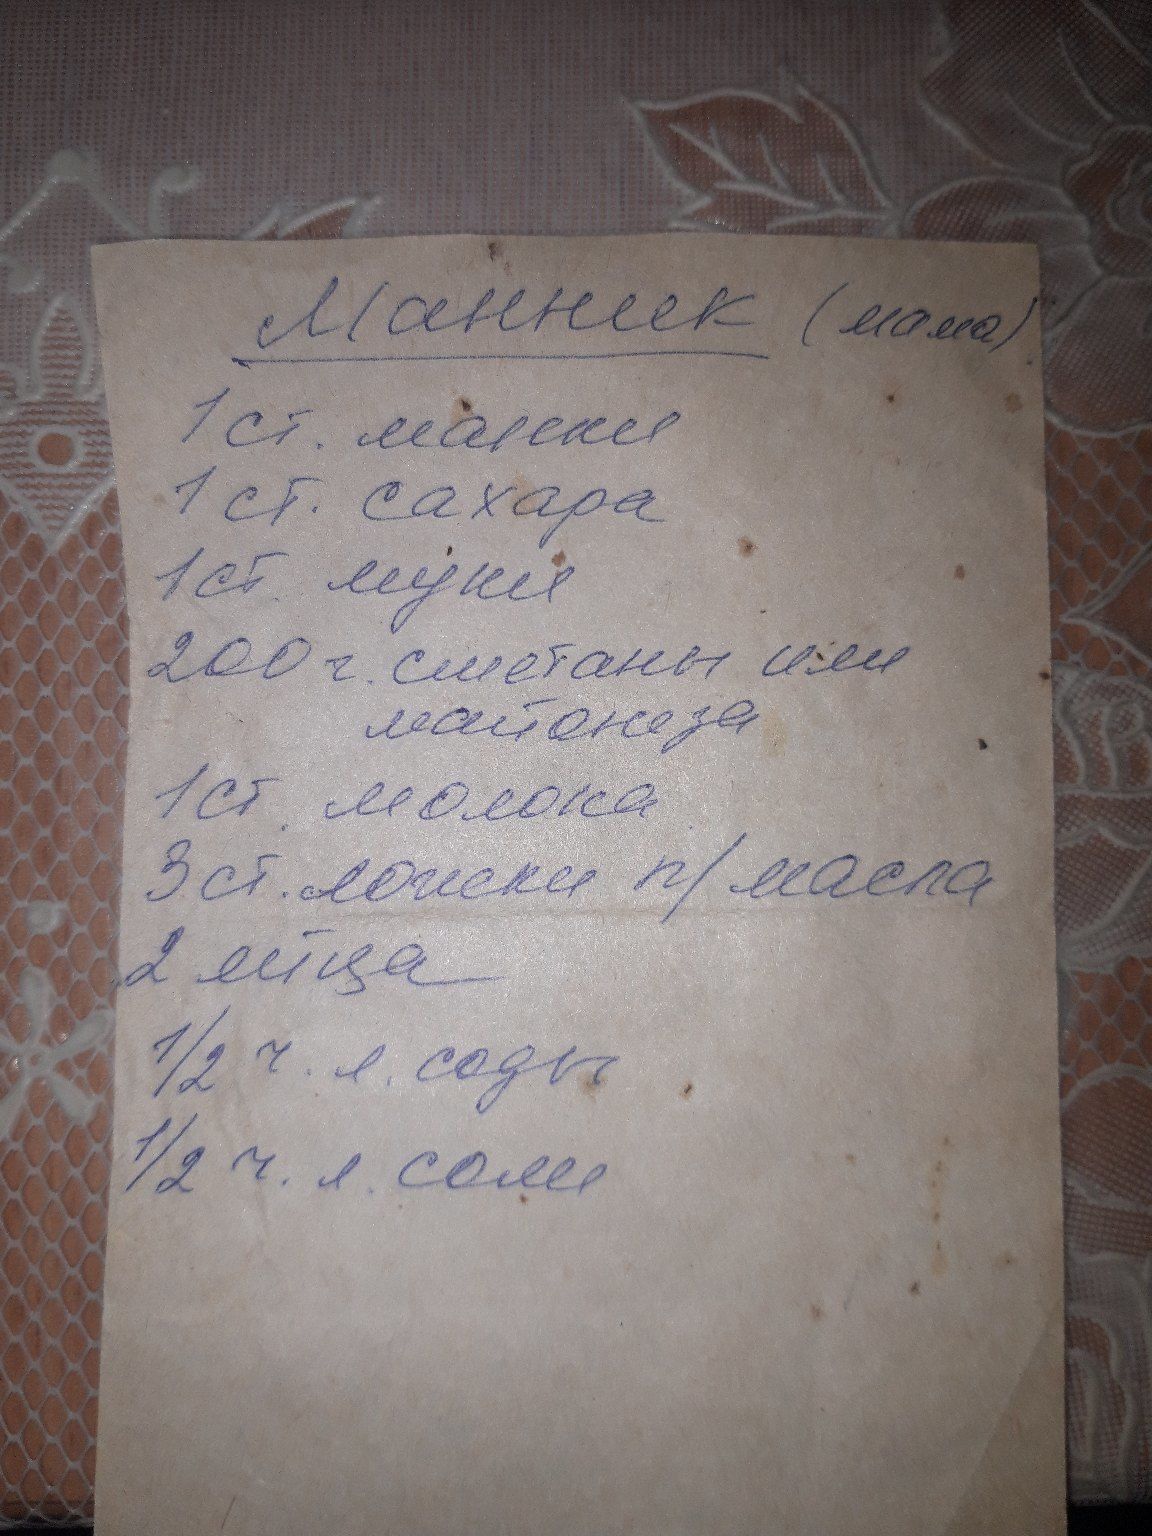 Манник (мама)
1 ст. манки
1 ст. сахара
1 ст. муки
200 г. сметаны или
майонеза
1 ст. молока
3 ст. ложки п/масла
2 яйца
1/2 ч. л. соды
1/2 ч. л. соли